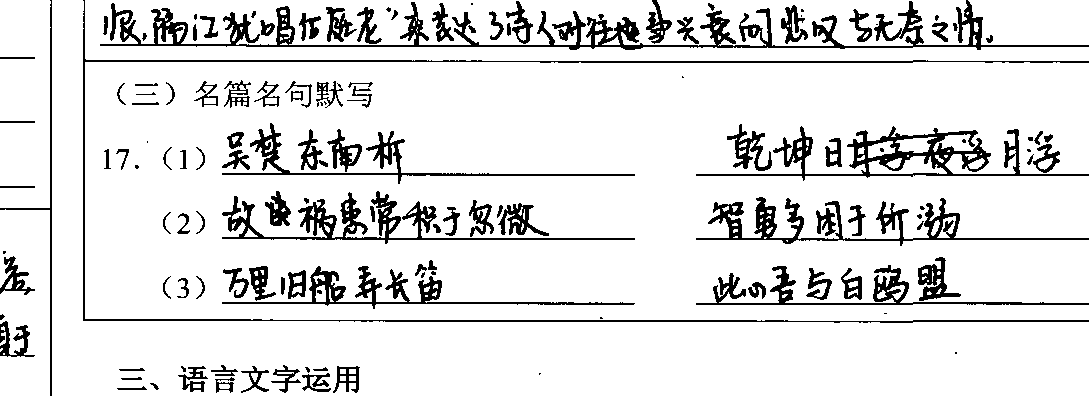 恨,隔江犹唱后庭花"来表达了诗人对往世事兴衰的悲叹与无奈之情。
(三)名篇名句默写
17.(1)吴楚东南析 乾坤日月浮
(2)故 祸患常积于忽微 智勇多困于所溺
(3)万里旧船弄长笛 此心吾与白鸥盟
三、语言文字运用